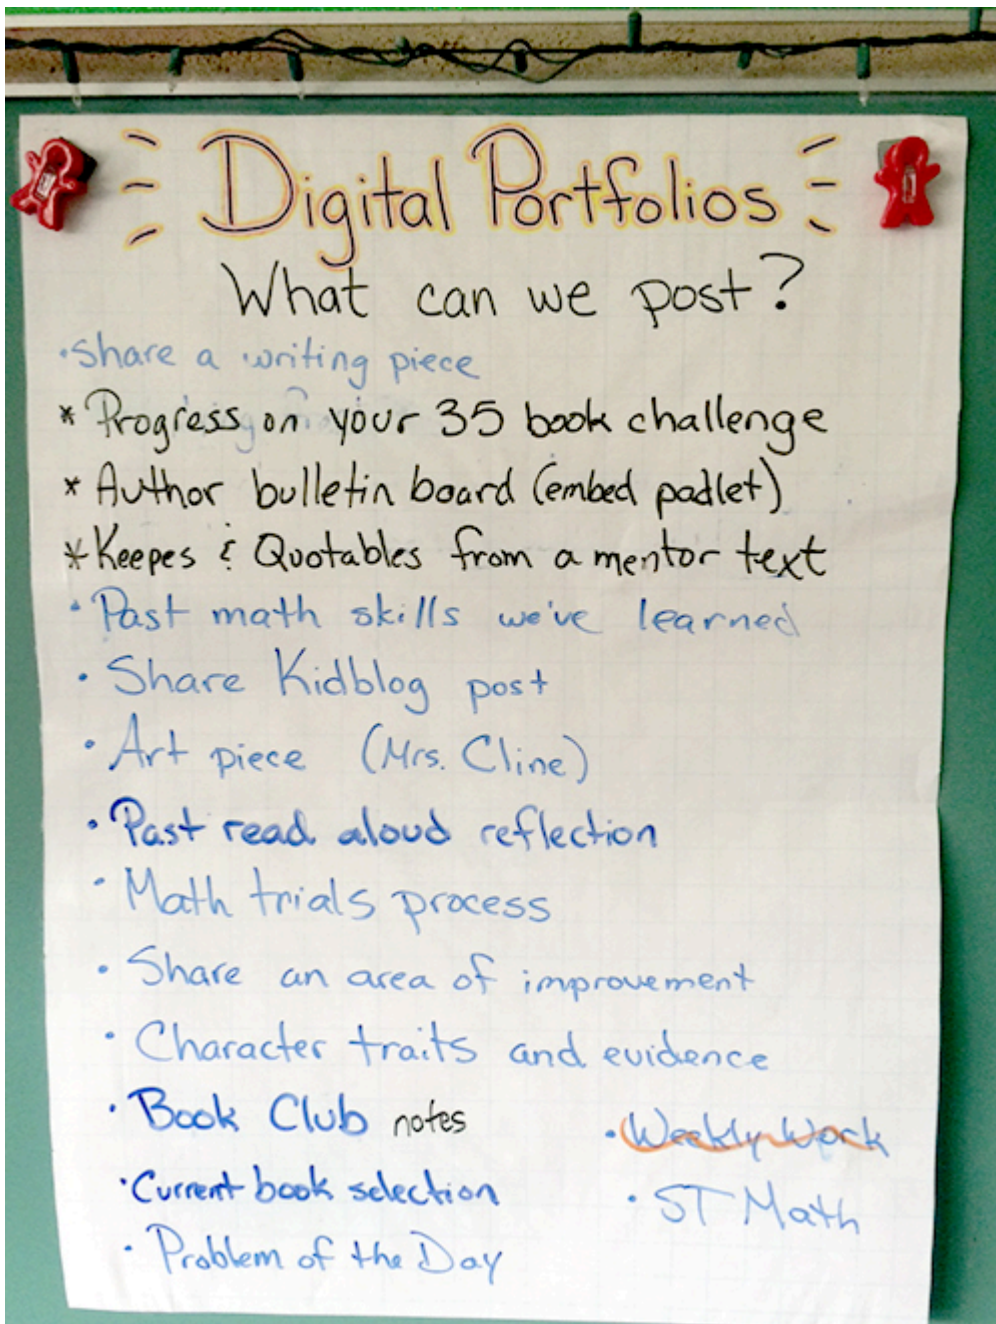 Digital Portfolios
What can we post?
·Share a writing piece
* Progress on your 35 book challenge
* Author bulletin board (embed padlet)
* Keepes & Quotables from a mentor text
· Past math skills we've learned
· Share Kidblog post
· Art piece (Mrs. Cline)
· Past read aloud reflection
· Math trials process
· Share an area of improvement
· Character traits and evidence
· Book Club notes
· Weekly Work
· Current book selection
· ST Math
· Problem of the Day